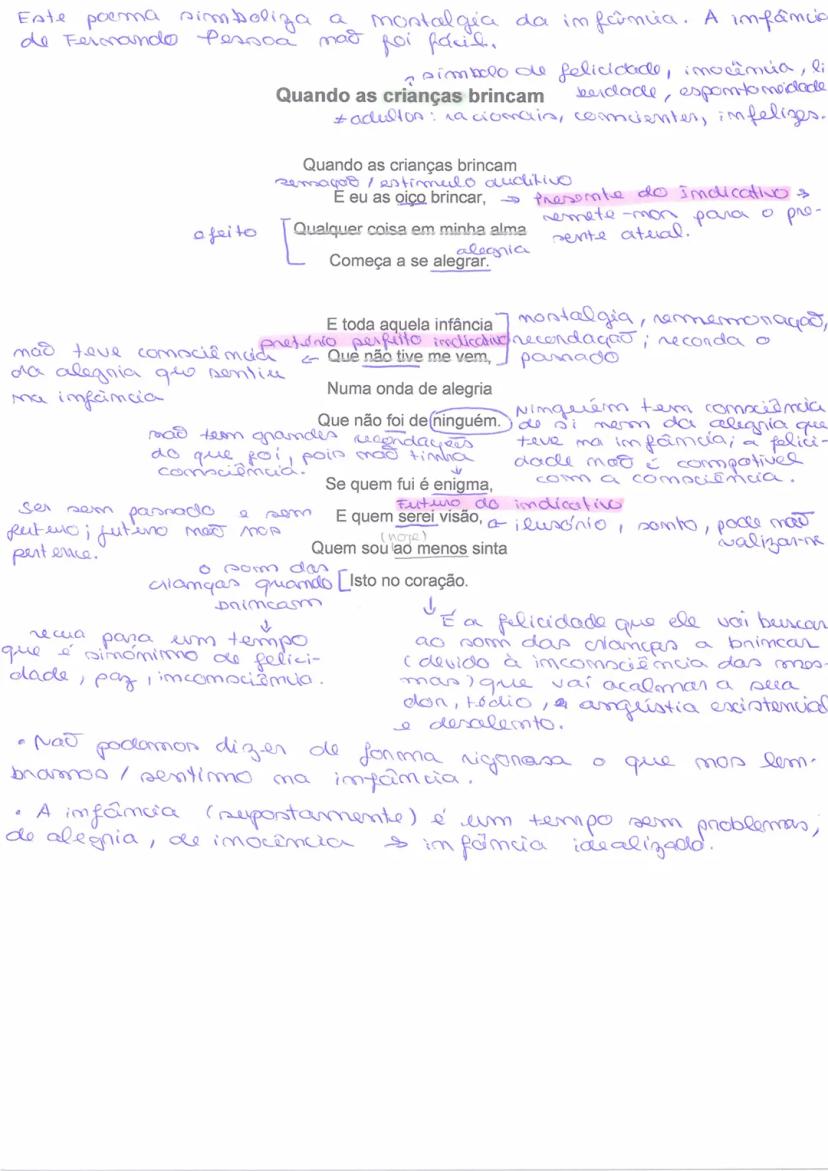 Este poema simboliza a nostalgia da infância. A infância
de Fernando Pessoa não foi fácil.
→ símbolo de felicidade, inocência, li
Quando as crianças brincam
berdade, espontaneidade
≠ adultos: racionais, conscientes, infelizes.
Quando as crianças brincam
sensação / estímulo auditivo
E eu as oiço brincar,
→ Presente do Indicativo →
remete-nos para o pre-
sente atual.
efeito
Qualquer coisa em minha alma
alegria
Começa a se alegrar.
E toda aquela infância
nostalgia, rememoração,
pretério perfeito indicativo
recordação; recorda o
passado
não teve consciência ← Que não tive me vem,
da alegria que sentiu
na infância
Numa onda de alegria
Que não foi de ninguém.
Ninguém tem consciência
de si nem da alegria que
teve na infância; a felici-
dade não é compatível
com a consciência.
não tem grandes recordações
do que foi, pois não tinha
consciência.
Se quem fui é enigma,
Futuro do indicativo
Ser sem passado e sem
futuro; futuro não nos
pertence.
E quem serei visão,
→ ilusório, sonho, pode não
realizar-se
(hoje)
Quem sou ao menos sinta
o som das
crianças quando
brincam
Isto no coração.
recua para um tempo
que é sinónimo de felici-
dade, paz, inconsciência.
É a felicidade que ele vai buscar
ao som das crianças a brincar
(devido à inconsciência das mes-
mas) que vai acalmar a sua
dor, tédio, angústia existencial
e desalento.
• Não podemos dizer de forma rigorosa o que nos lem-
bramos / sentimo na infância.
• A infância (supostamente) é um tempo sem problemas,
de alegria, de inocência → infância idealizada.